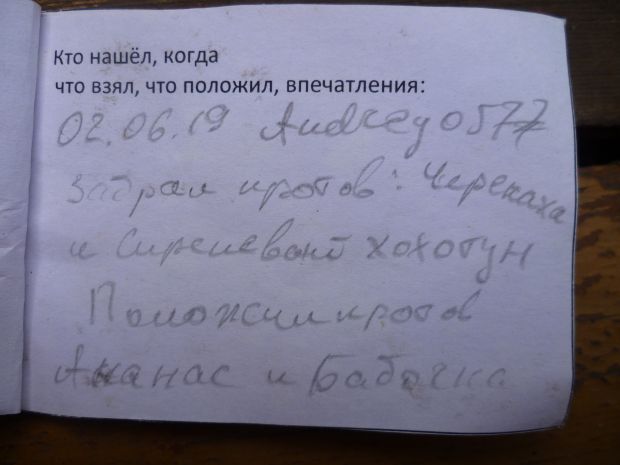 Кто нашёл, когда
что взял, что положил, впечатления:
02.06.19 Andrey0577
Забрал кротов: Черепаха
и Сиреневый хохотун
Положил кротов
Ананас и Бабочка